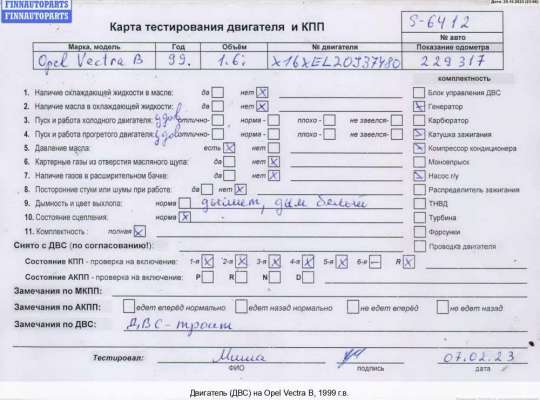 FINNAUTOPARTS
FINNAUTOPARTS
Карта тестирования двигателя и КПП
S-6412
№ авто
Марка, модель Год Объём № двигателя Показание одометра
Opel Vectra B 99. 1.6i X16XEL20J37480 229317
комплектность
1. Наличие охлаждающей жидкости в масле: да нет X
2. Наличие масла в охлаждающей жидкости: да нет X
3. Пуск и работа холодного двигателя: удов отлично- норма - плохо - не завелся-
4. Пуск и работа прогретого двигателя: удов отлично- норма - плохо - не завелся-
5. Давление масла: есть X нет
6. Картерные газы из отверстия масляного щупа: да нет X
7. Наличие газов в расширительном бачке: да нет X
8. Посторонние стуки или шумы при работе: да нет X
9. Дымность и цвет выхлопа: норма дымит, дым белый
10. Состояние сцепления: норма X
11. Комплектность : полная X
Блок управления ДВС
Генератор
Карбюратор
Катушка зажигания
Компрессор кондиционера
Моновпрыск
Насос г/у
Распределитель зажигания
ТНВД
Турбина
Форсунки
Проводка двигателя
Снято с ДВС (по согласованию!):
Состояние КПП - проверка на включение: 1-я X 2-я X 3-я X 4-я X 5-я X 6-я R X
Состояние АКПП - проверка на включение: P R N D
Замечания по МКПП:
Замечания по АКПП: едет вперёд нормально едет назад нормально не едет вперёд не едет назад
Замечания по ДВС: ДВС - троит
Тестировал: Миша 07.02.23
ФИО подпись дата
Двигатель (ДВС) на Opel Vectra B, 1999 г.в.